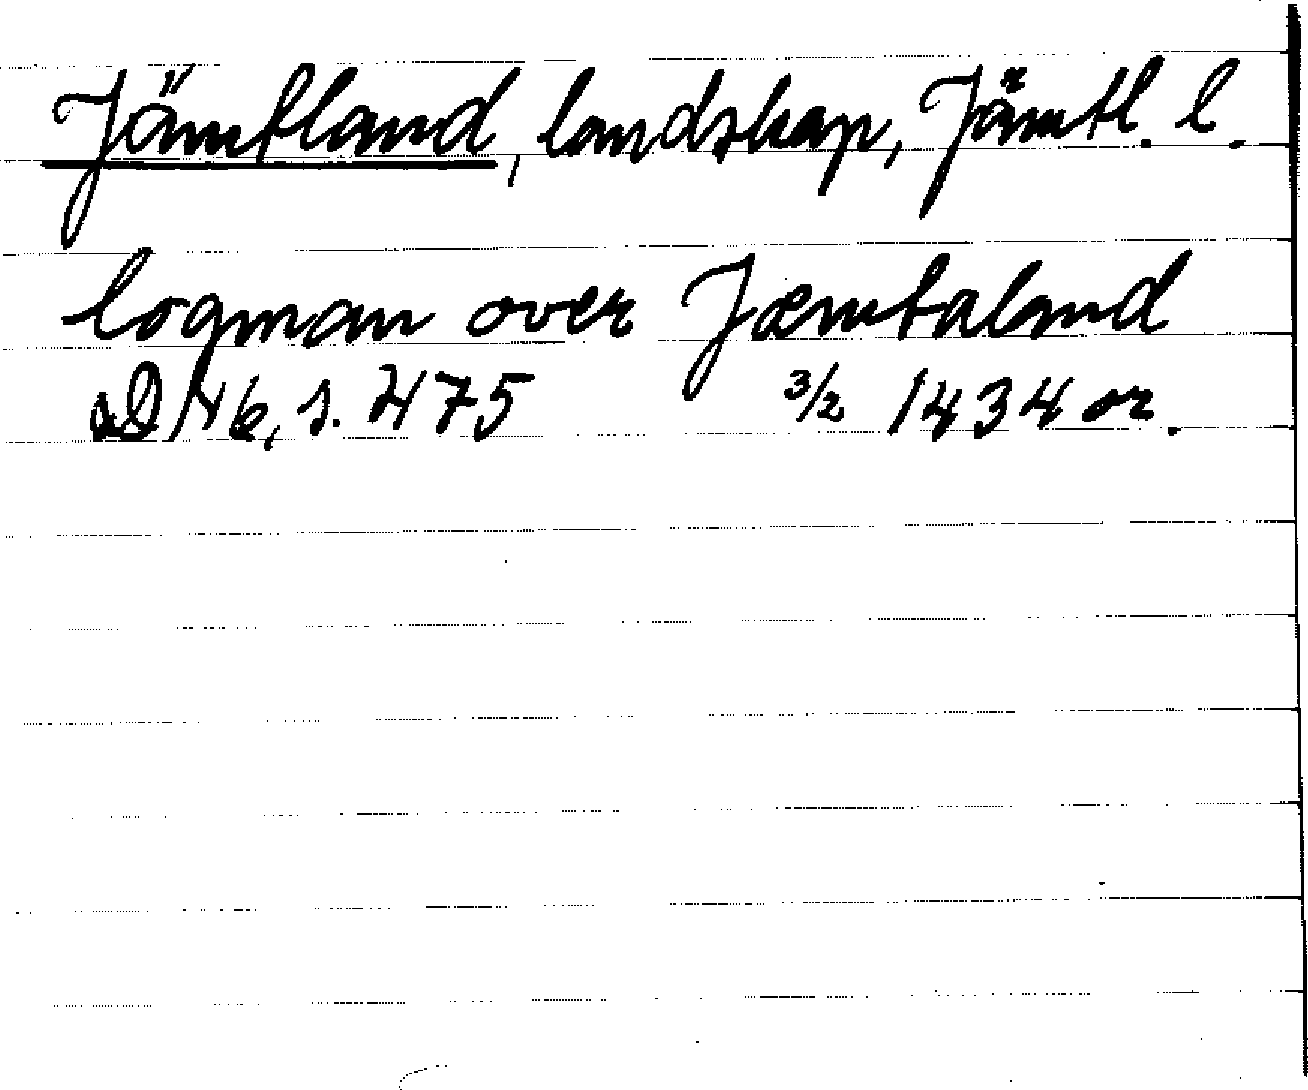 Jämtland, landskap, Jämtl. l.
logman over Jæmtaland
DN 6, s. 475 3/2 1434 or.